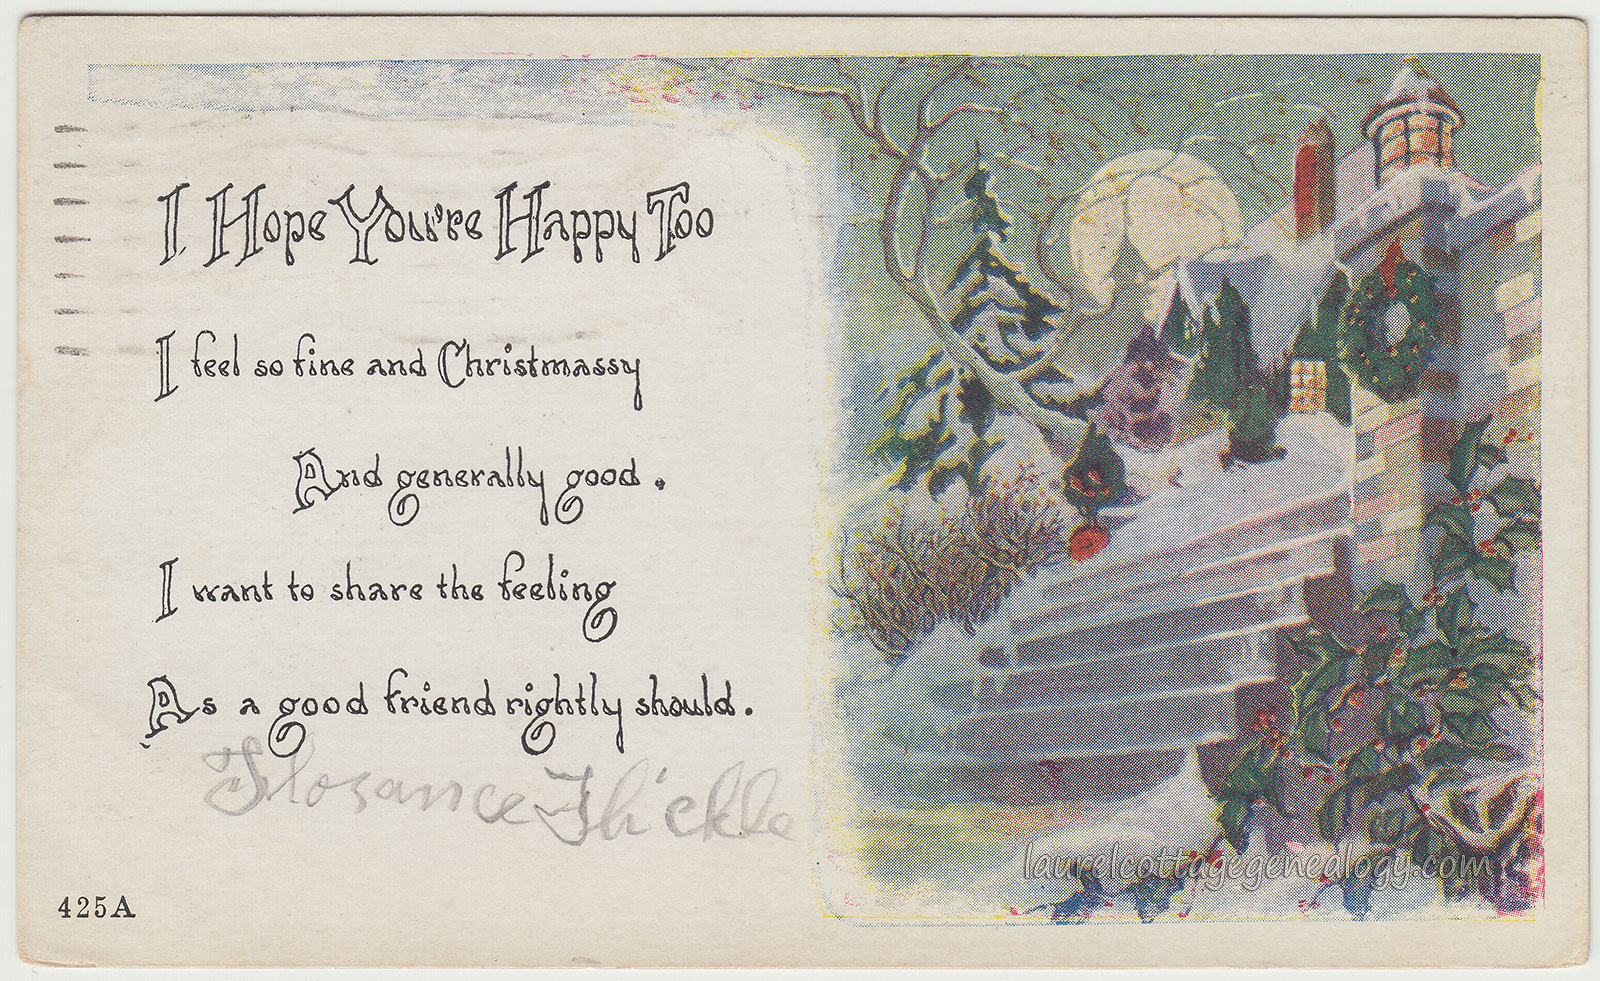 I Hope You're Happy Too
I feel so fine and Christmassy
And generally good.
I want to share the feeling
As a good friend rightly should.
Florance Thickle
425A
laurelcottagegenealogy.com